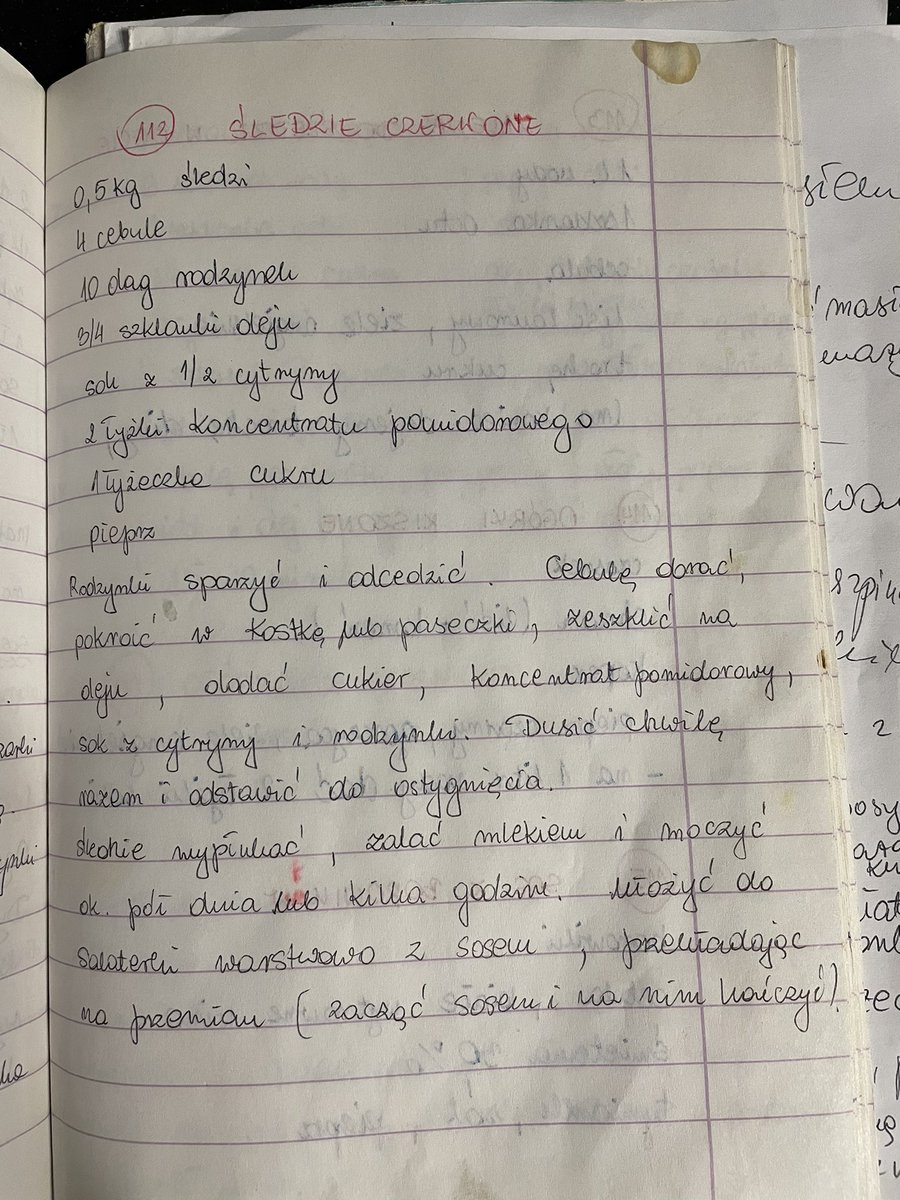 112 ŚLEDZIE CZERWONE
0,5 kg śledzi
4 cebule
10 dag rodzynek
3/4 szklanki oleju
sok z 1/2 cytryny
2 łyżki koncentratu pomidorowego
1 łyżeczka cukru
pieprz
Rodzynki sparzyć i odcedzić. Cebulę obrać,
pokroić w kostkę lub paseczki, zeszklić na
oleju, dodać cukier, koncentrat pomidorowy,
sok z cytryny i rodzynki. Dusić chwilę
razem i odstawić do ostygnięcia.
Śledzie wypłukać, zalać mlekiem i moczyć
ok. pół dnia lub kilka godzin. Włożyć do
salaterki warstwowo z sosem, przekładając
na przemian (zacząć sosem i na nim kończyć)